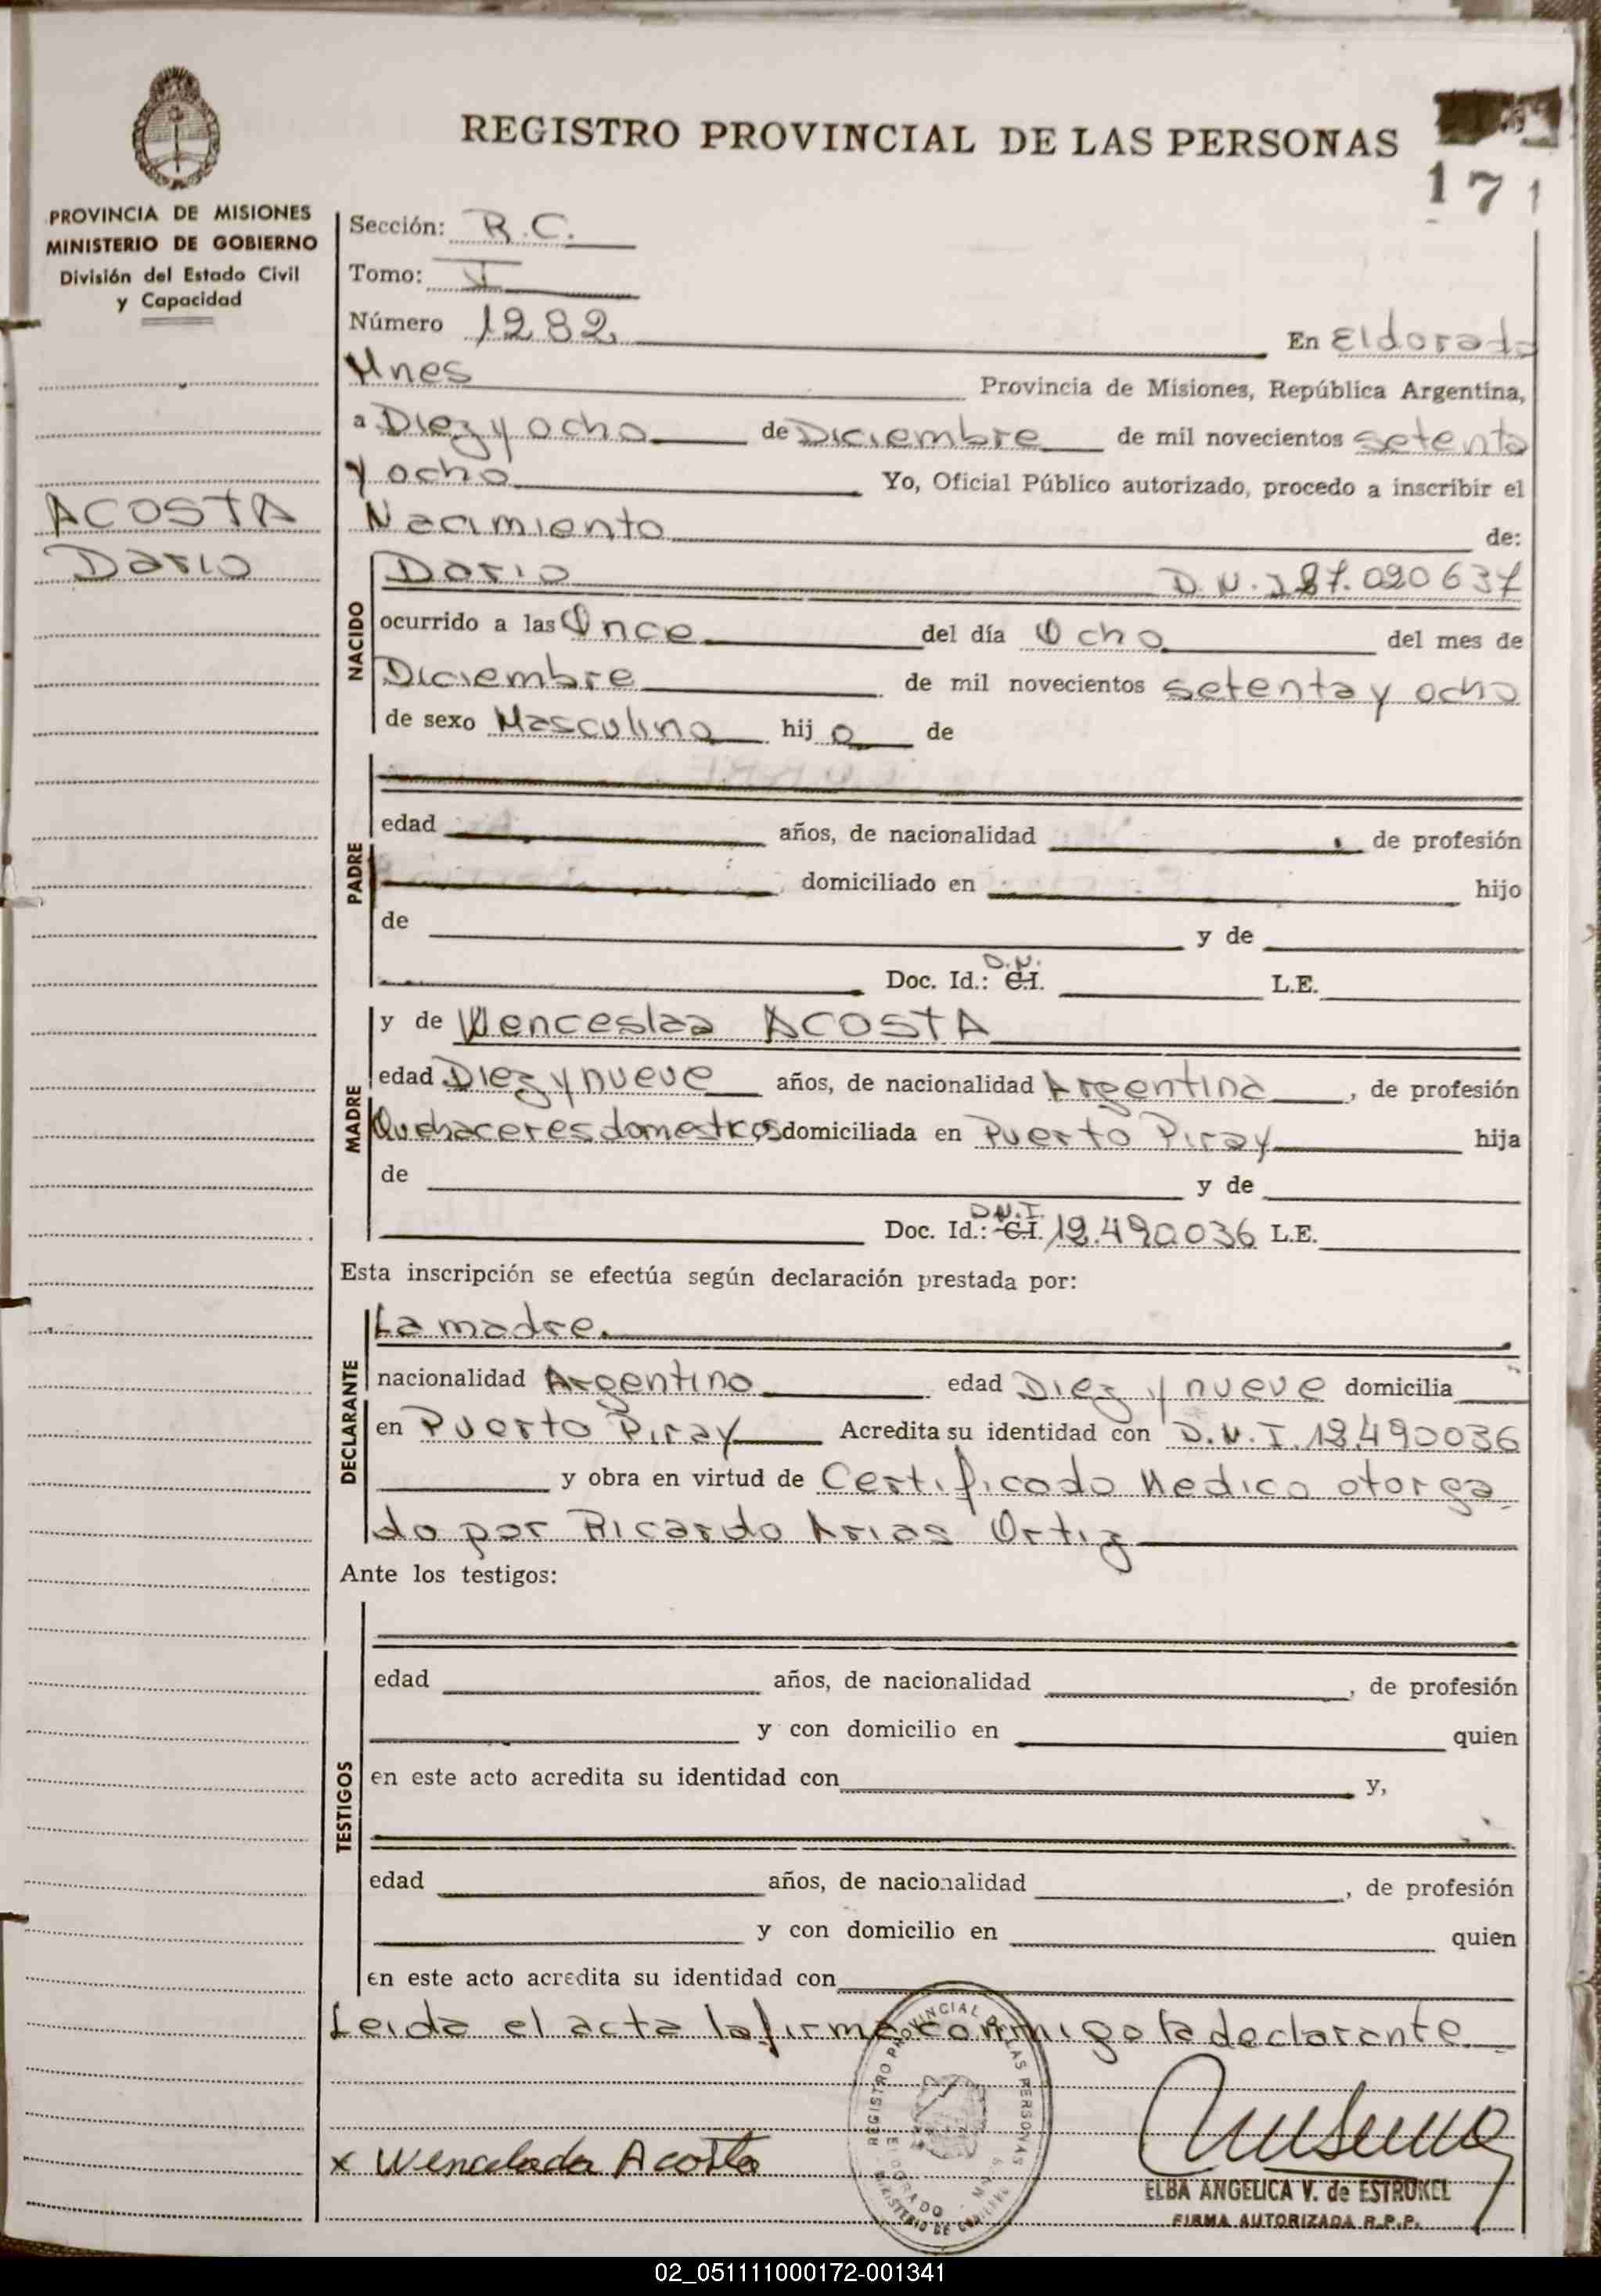 REGISTRO PROVINCIAL DE LAS PERSONAS
171
PROVINCIA DE MISIONES
MINISTERIO DE GOBIERNO
División del Estado Civil
y Capacidad
Sección: R.C.
Tomo: I
Número 1282 En Eldorado
Mnes Provincia de Misiones, República Argentina,
a Diez y ocho de Diciembre de mil novecientos setenta
y ocho Yo, Oficial Público autorizado, procedo a inscribir el
ACOSTA
Dario
Nacimiento de:
NACIDO
Dario D.N.I 27.020637
ocurrido a las Once del día Ocho del mes de
Diciembre de mil novecientos setenta y ocho
de sexo Masculino hij o de
PADRE
edad años, de nacionalidad , de profesión
domiciliado en hijo
de y de
D.N.
Doc. Id.: C.I. L.E.
MADRE
y de Wenceslaa ACOSTA
edad Diez y nueve años, de nacionalidad Argentina, de profesión
Quehaceres domesticos domiciliada en Puerto Piray hija
de y de
D.N.I.
Doc. Id.: C.I. 12.490036 L.E.
Esta inscripción se efectúa según declaración prestada por:
DECLARANTE
La madre.
nacionalidad Argentino edad Diez y nueve domicilia
en Puerto Piray Acredita su identidad con D.N.I. 12.490036
y obra en virtud de Certificado Medico otorga
do por Ricardo Arias Ortiz
Ante los testigos:
TESTIGOS
edad años, de nacionalidad , de profesión
y con domicilio en quien
en este acto acredita su identidad con y,
edad años, de nacionalidad , de profesión
y con domicilio en quien
en este acto acredita su identidad con
Leida el acta la firma conmigo la declarante
REGISTRO PROVINCIAL DE LAS PERSONAS
MINISTERIO DE GOBIERNO
x Wencelada Acosta
ELBA ANGELICA V. de ESTRUKEL
FIRMA AUTORIZADA R.P.P.
02_051111000172-001341